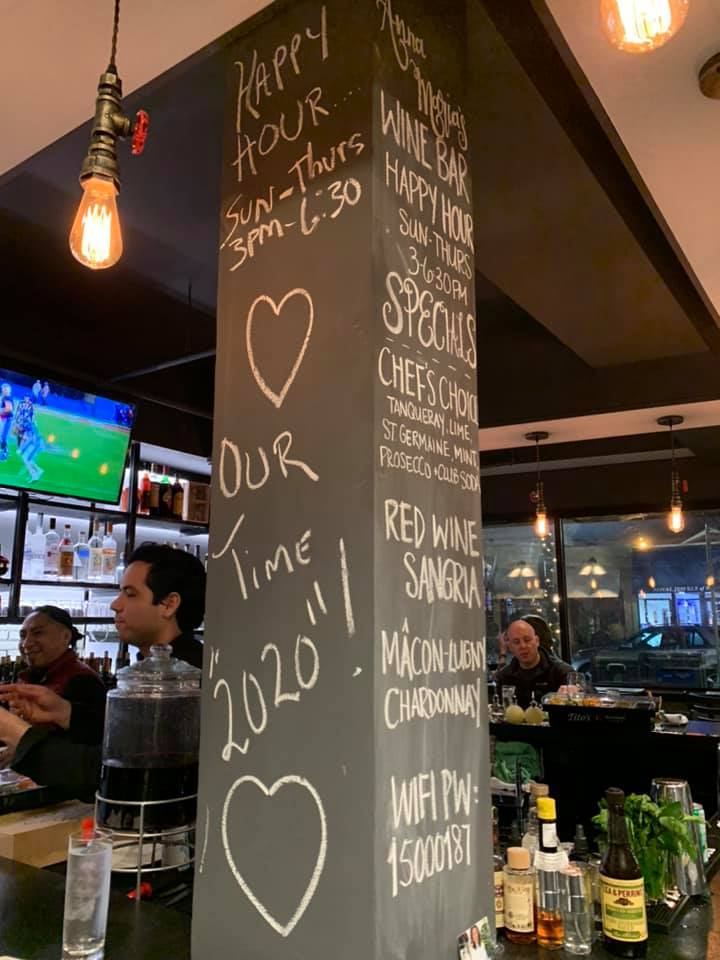 HAPPY
HOUR....
SUN-Thurs
3PM-6:30
OUR
TIME
"2020"!
Anna
Maria's
WINE BAR
HAPPY HOUR
SUN-THURS
3-6:30PM
SPECIALS
CHEF'S CHOICE
TANQUERAY, LIME,
ST GERMAINE, MINT
PROSECCO + CLUB SODA
RED WINE
SANGRIA
MÂCON-LUGNY
CHARDONNAY
WIFI PW:
15000187
Tito's
LEA & PERRINS